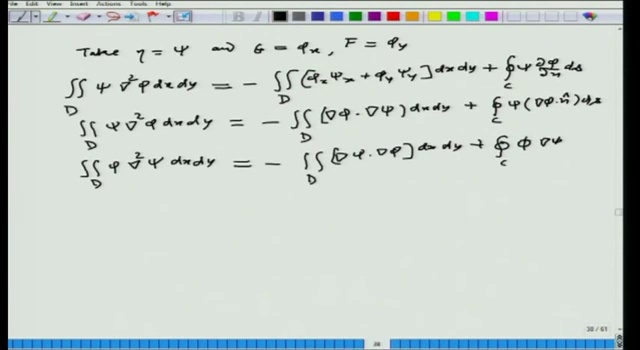 File Edit View Insert Actions Tools Help
Take η = Ψ and G = φx, F = φy
∬D Ψ ∇²φ dx dy = - ∬D [φxΨx + φyΨy] dx dy + ∮C Ψ ∂φ/∂n ds
∬D Ψ ∇²φ dx dy = - ∬D (∇φ · ∇Ψ) dx dy + ∮C Ψ (∇φ · n̂) ds
∬D φ ∇²Ψ dx dy = - ∬D [∇φ · ∇φ] dx dy + ∮C φ ∇Ψ
38 / 61
38